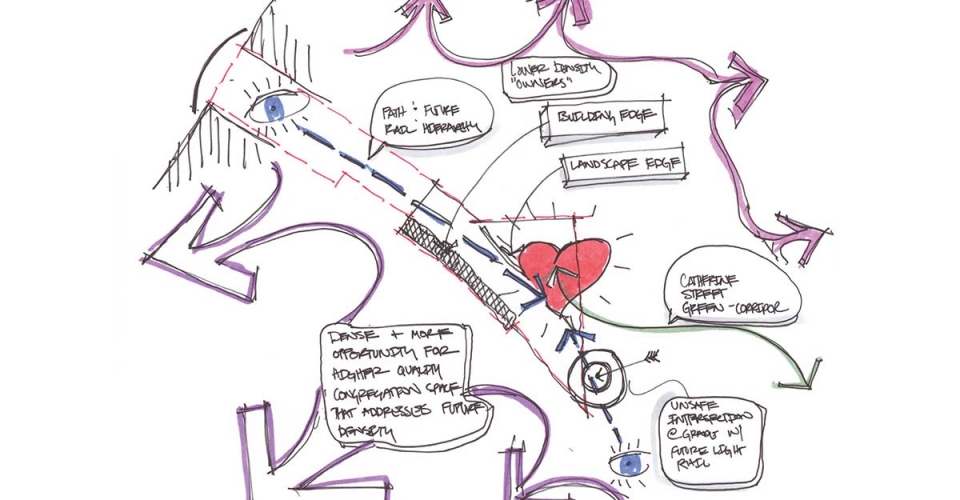 LOWER DENSITY
"OWNERS"
PATH : FUTURE
RAIL HIERARCHY
BUILDING EDGE
LANDSCAPE EDGE
CATHERINE
STREET
GREEN-CORRIDOR
DENSE + MORE
OPPORTUNITY FOR
HIGHER QUALITY
CONGREGATION SPACE
THAT ADDRESSES FUTURE
DENSITY
UNSAFE
INTERSECTION
@ GRADE W/
FUTURE LIGHT
RAIL